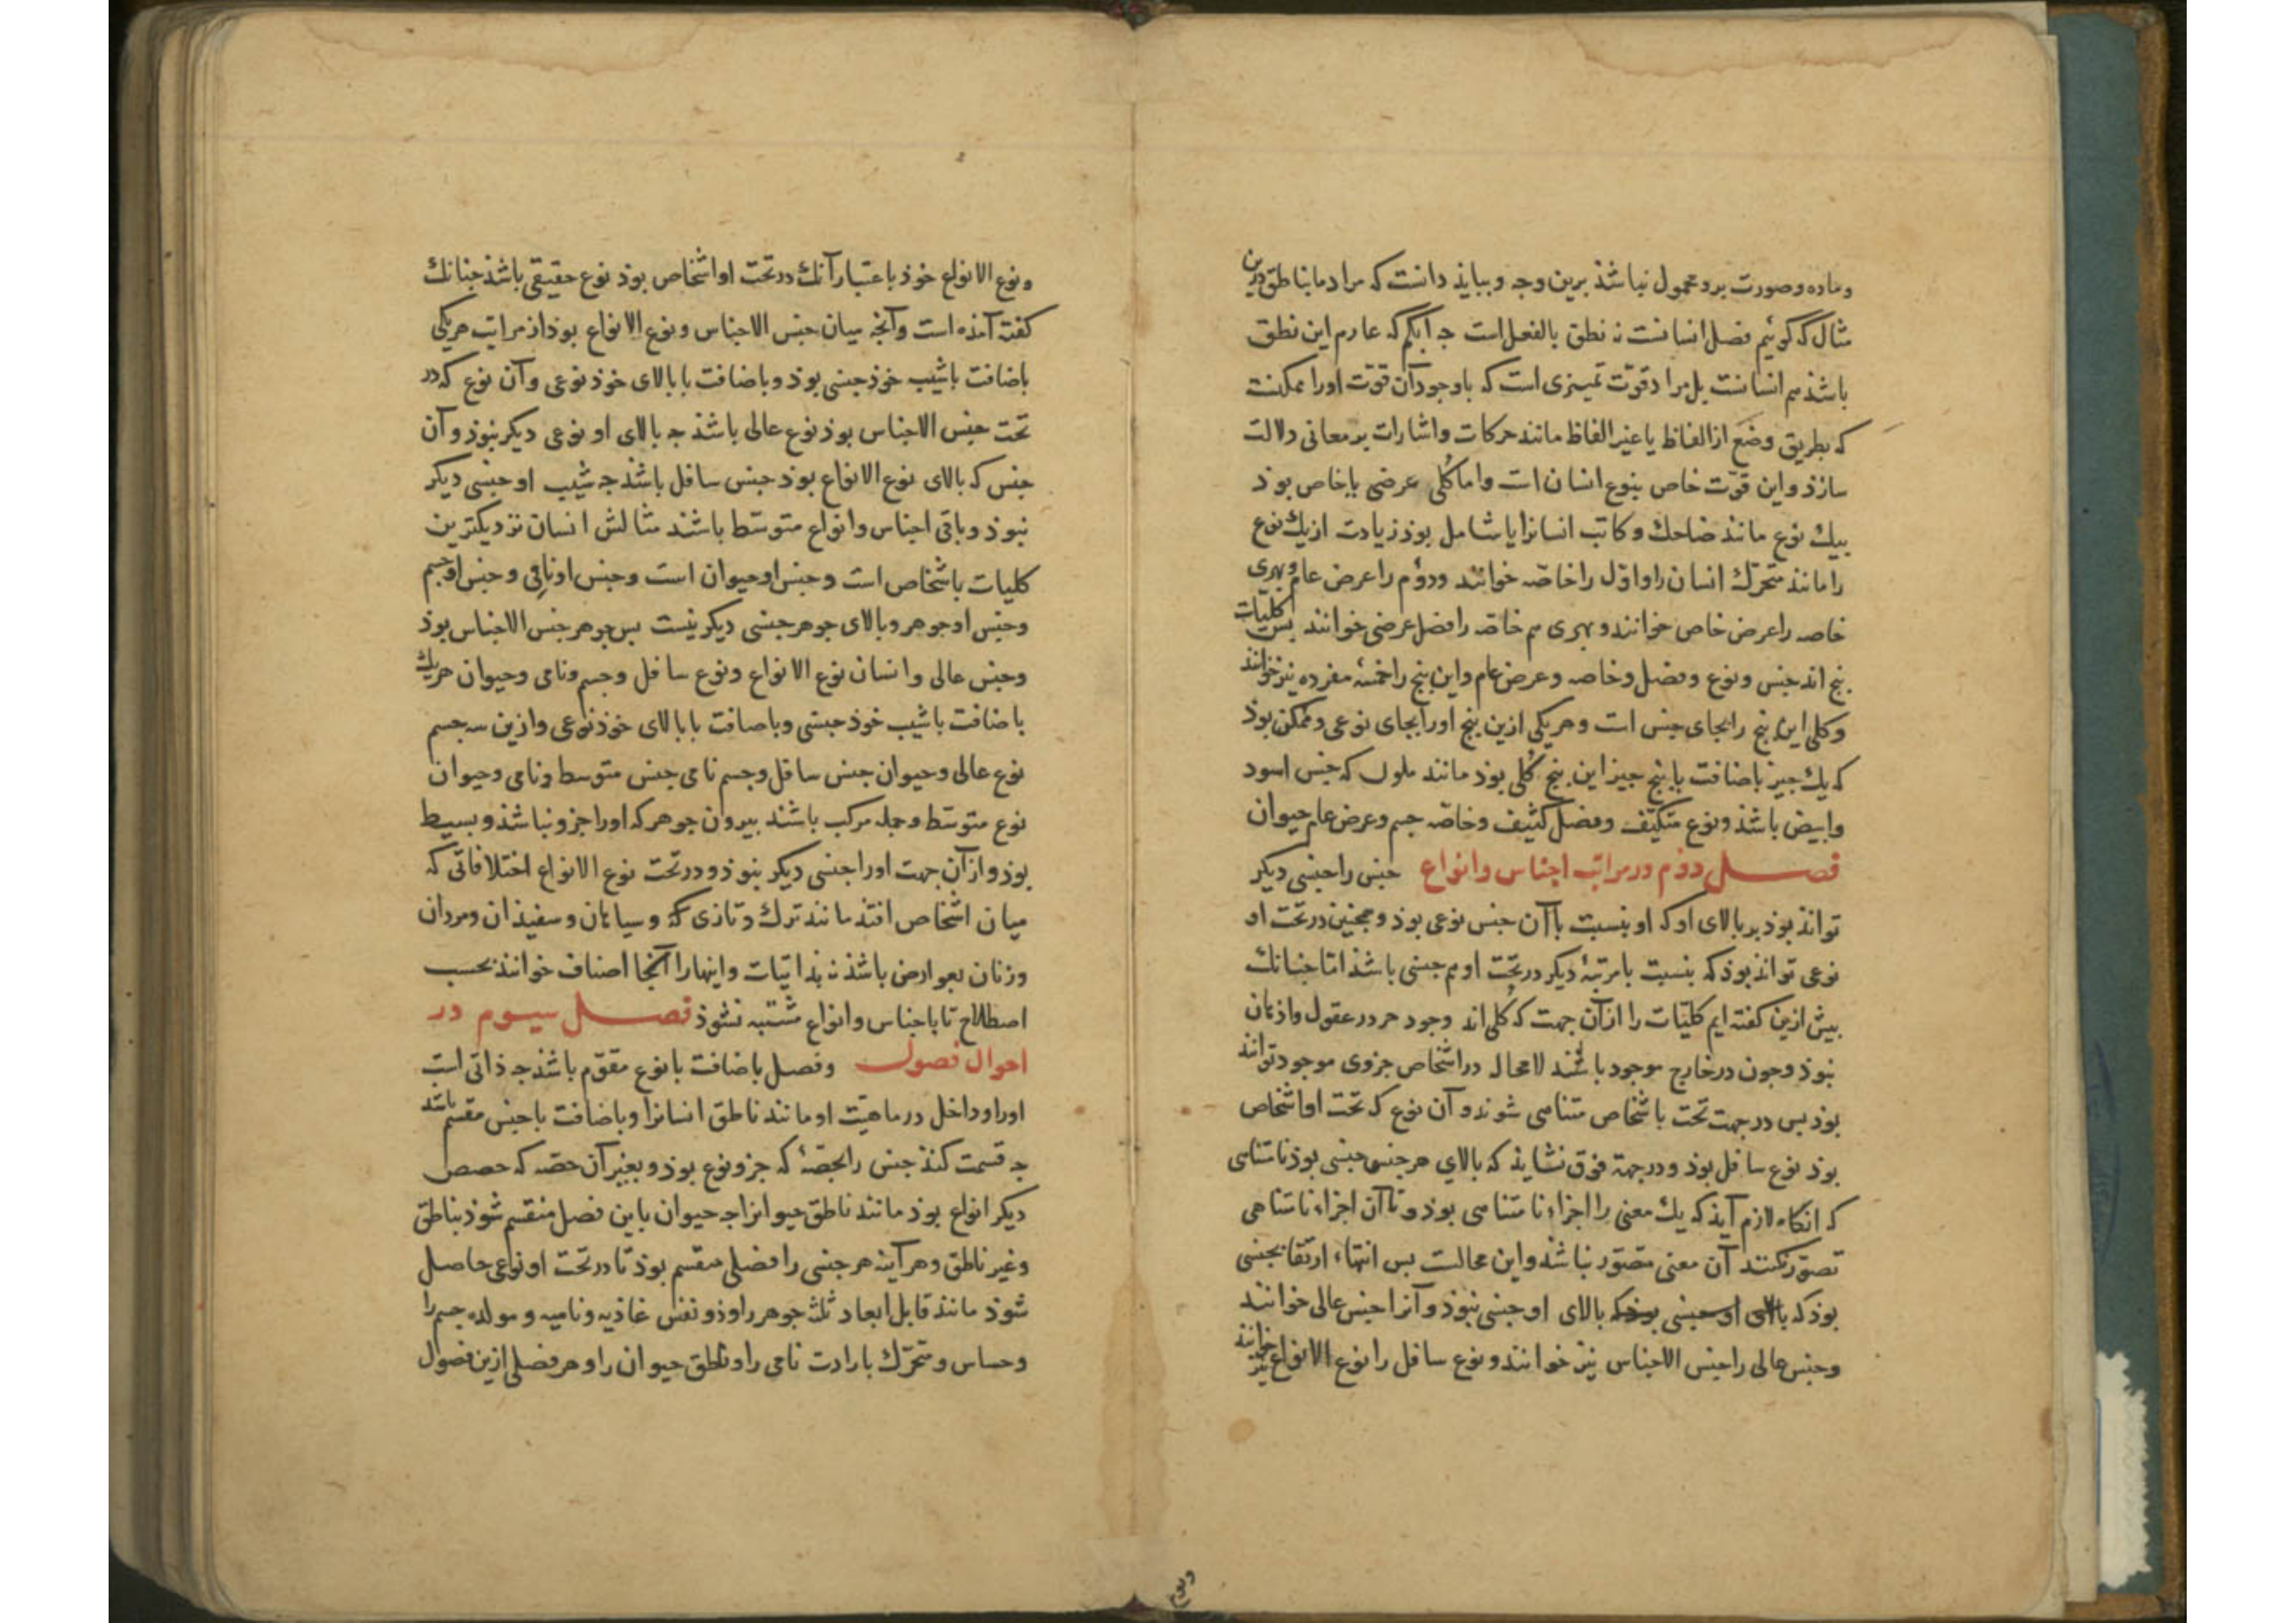 وماده وصورت برو محمول نباشذ برین وجه وببایذ دانست که مراد ما بناطق درین
مثال که گوئیم فصل انسانست نه نطق بالفعل است جه ابکم که عادم این نطق
باشذ هم انسانست بل مراد قوّت تمییزی است که باوجود آن قوّت اورا ممکنست
که بطریق وضع از الفاظ یا غیر الفاظ مانند حرکات واشارات بر معانی دلالت
سازذ واین قوّت خاص بنوع انسان است واما کلی عرضی یا خاص بوذ
بیك نوع مانند ضاحك وکاتب انسانرا یا شامل بوذ زیادت از یك نوع
را مانند متحرّك انسان را واوّل را خاصّه خوانند ودوّم را عرض عام وبهری
خاصه را عرض خاص خوانند وبهری هم خاصّه را فصل عرضی خوانند بس کلیات
بنج اند جنس ونوع وفصل وخاصه وعرض عام واین بنج را خمسهٔ مفرده نیز خوانند
وکلی این بنج را بجای جنس است وهریکی ازین بنج اورا بجای نوعی وممکن بوذ
که یك جیز باضافت با بنج جیز این بنج کُلی بوذ مانند ملون که جنس اسود
وابیض باشذ ونوع متکیّف وفصل کثیف وخاصّه جسم وعرض عام حیوان
فصل دوّم در مراتب اجناس وانواع جنس را جنسی دیکر
تواند بوذ بر بالای او که او بنسبت با آن جنس نوعی بوذ وهمجنین در تحت او
نوعی تواند بوذ که بنسبت با مرتبهٔ دیکر در تحت او هم جنسی باشذ اما جنانك
بیش ازین کفته ایم کلیّات را ازآن جهت که کُلی اند وجود جز در عقول واذهان
نبوذ وجون در خارج موجود باشند لامحاله در اشخاص جزوی موجود توانند
بوذ بس در جهت تحت باشخاص متناهی شوند وآن نوع که تحت او اشخاص
بوذ نوع سافل بوذ ودر جهة فوق نشاید که بالای هر جنسی جنسی بوذ نامتناهی
که آنکاه لازم آیذ که یك معنی را اجزاء نامتناهی بوذ وتا آن اجزاء نامتناهی
تصوّر نکنند آن معنی متصّور نباشذ واین محالست بس انتهاء ارتقا بجنسی
بوذ که بالای او جنسی بوذکه بالای او جنسی نبوذ وآنرا جنس عالی خوانند
وجنس عالی را جنس الاجناس نیز خوانند ونوع سافل را نوع الانواع نیز خوانند
ونوع
ونوع الانواع خوذ باعتبار آنك در تحت او اشخاص بوذ نوع حقیقی باشذ جنانك
کفته آمذه است وآنجه میان جنس الاجناس ونوع الانواع بوذ از مراتب هریکی
باضافت باشیب خوذ جنسی بوذ وباضافت با بالای خوذ نوعی وآن نوع که در
تحت جنس الاجناس بوذ نوع عالی باشذ جه بالای او نوعی دیکر نبوذ وآن
جنس که بالای نوع الانواع بوذ جنس سافل باشذ جه شیب او جنسی دیکر
نبوذ وباقی اجناس وانواع متوسّط باشند مثالش انسان نزدیکترین
کلیات باشخاص است وجنس او حیوان است وجنس او نامی وجنس او جسم
وجنس او جوهر وبالای جوهر جنسی دیکر نیست بس جوهر جنس الاجناس بوذ
وجنس عالی وانسان نوع الانواع ونوع سافل وجسم ونامی وحیوان هریك
باضافت باشیب خوذ جنسی وباضافت با بالای خوذ نوعی وازین سه جسم
نوع عالی وحیوان جنس سافل وجسم نامی جنس متوسط ونامی وحیوان
نوع متوسّط وجمله مرکب باشند بیرون جوهر که اورا جزو نباشذ وبسیط
بوذ وازآن جهت اورا جنسی دیکر نبوذ ودر تحت نوع الانواع اختلافاتی که
میان اشخاص افتذ مانند ترك وتازی که وسیاهان وسفیذان ومردان
وزنان بعوارض باشذ نه بذاتیات واینها را آنجا اصناف خوانند بحسب
اصطلاح تا با جناس وانواع مشتبه نشوذ فصل سیوم در
احوال فصول وفصل باضافت با نوع مقوّم باشذ جه ذاتی است
اورا وداخل در ماهیّت او مانند ناطق انسانرا وباضافت با جنس مقسم باشد
جه قسمت کنذ جنس را بحصّهٔ که جزو نوع بوذ وبغیر آن حصّه که حصص
دیکر انواع بوذ مانند ناطق حیوانرا جه حیوان باین فصل منقسم شوذ بناطق
وغیر ناطق وهر آینه هر جنسی را فصلی مقسم بوذ تا در تحت او نوعی حاصل
شوذ مانند قابل ابعاد ثلثه جوهر را وذو نفس غاذیه ونامیه ومولده جسم را
وحساس ومتحرّك بارادت نامی را وناطق حیوان را وهر فصلی ازین فصول